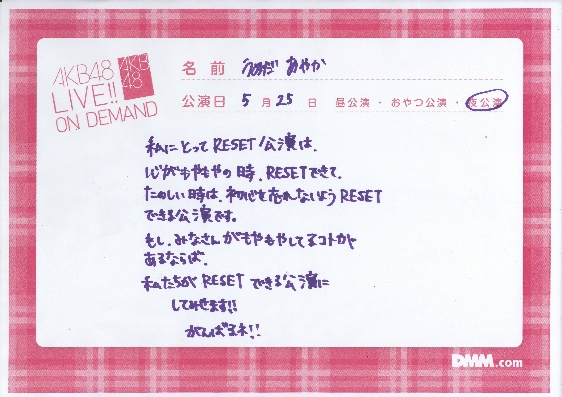 AKB48
LIVE!!
ON DEMAND
AKB
48
名前 うめだ あやか
公演日 5月25日 昼公演・おやつ公演・夜公演
私にとってRESET公演は、
心がもやもやの時、RESETできて、
たのしい時は、初心を忘れないようRESET
できる公演です。
もし、みなさんがもやもやしてるコトが
あるならば、
私たちがRESETできる公演に
してみせます!!
がんばるネ!!
DMM.com